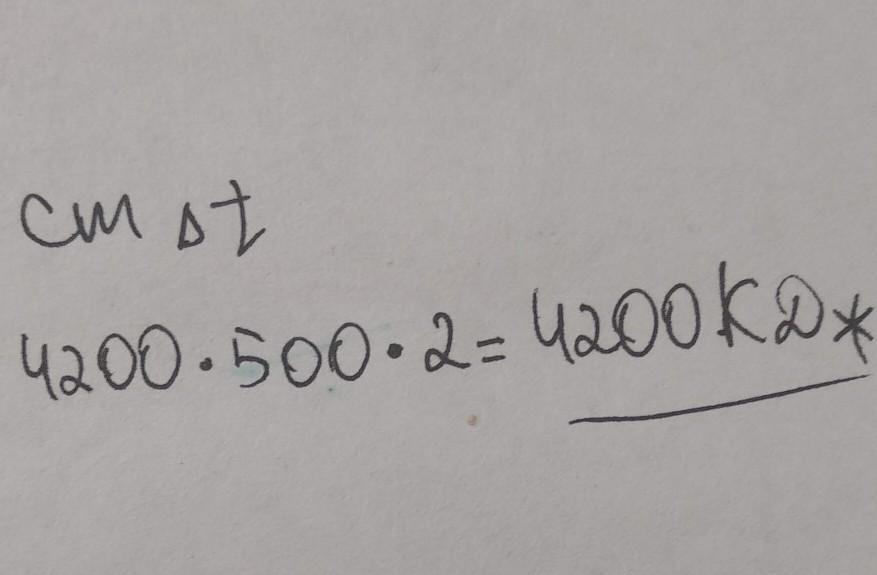 cm Δt
4200・500・2=4200КДж